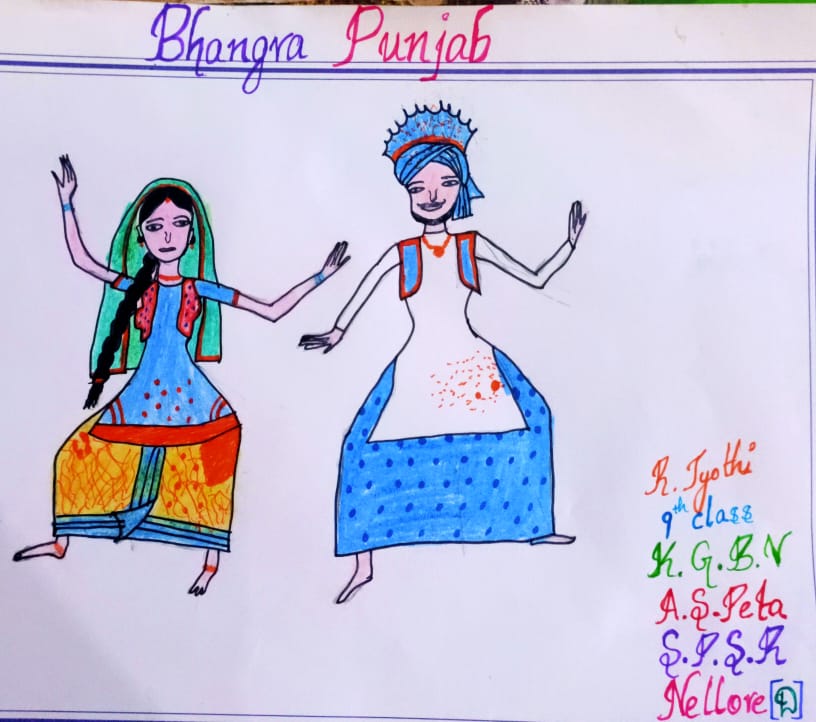 Bhangra Punjab
R. Jyothi
9th class
K.G.B.V
A.S.Peta
S.P.S.R
Nellore [D]